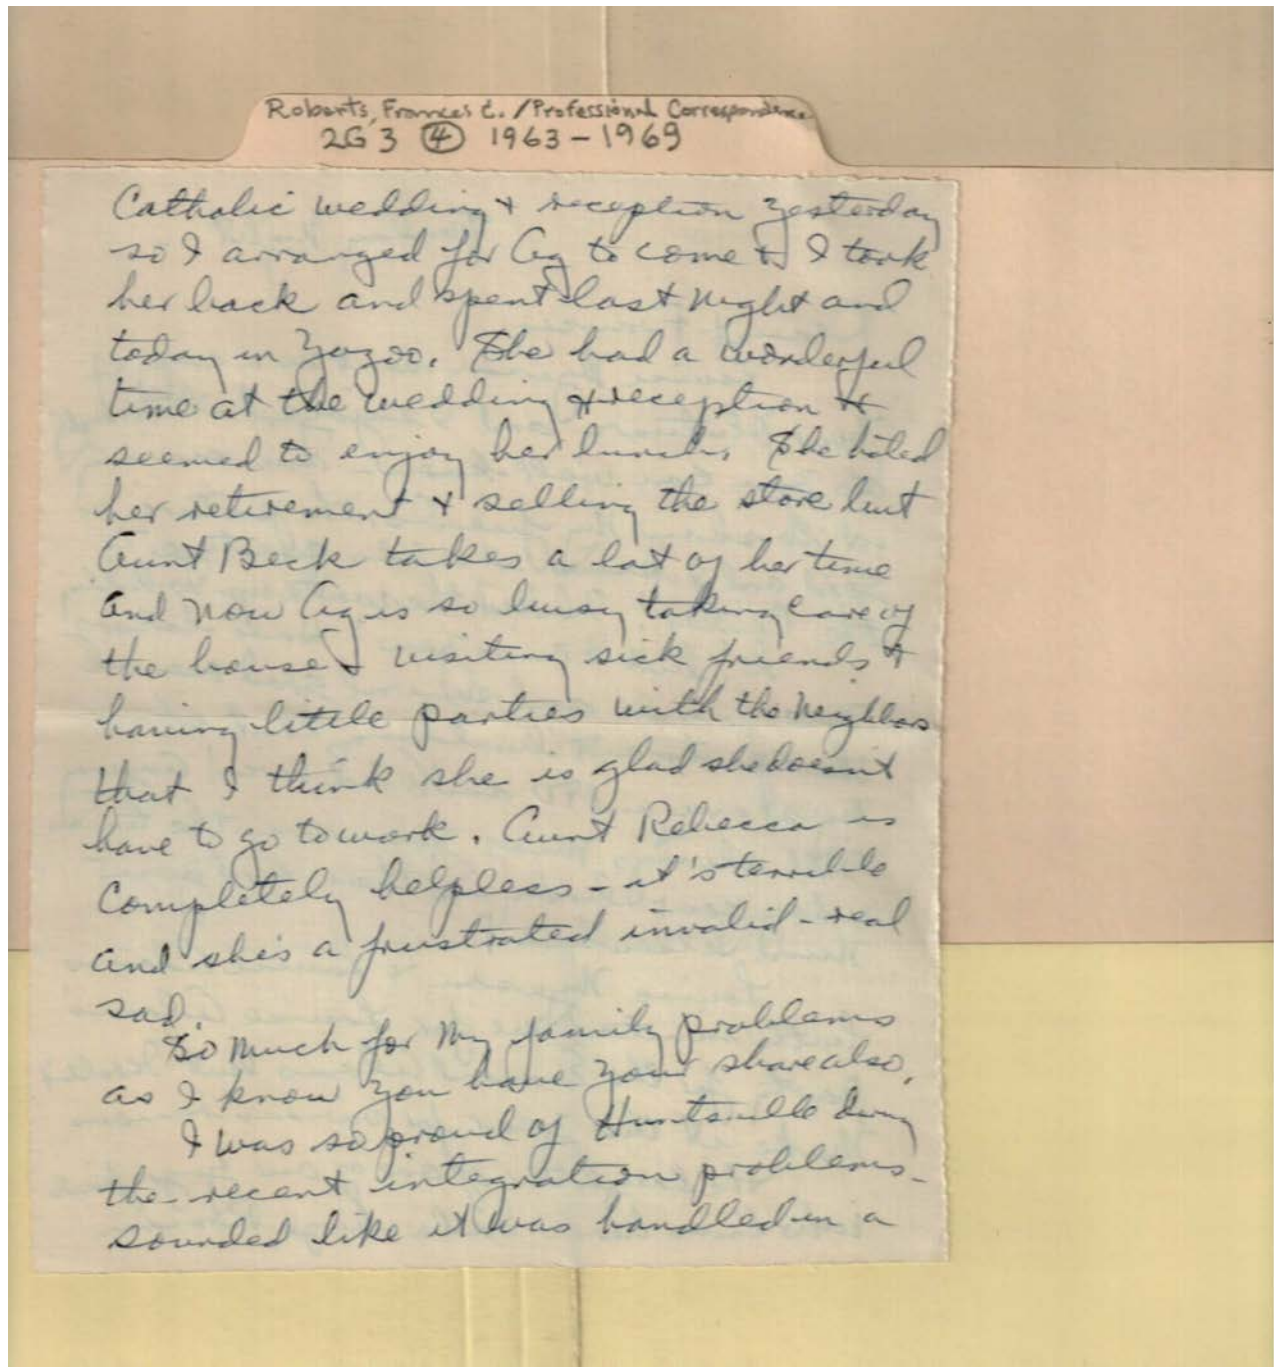 Roberts, Frances C. / Professional Correspondence
2G 3 ④ 1963-1969
Catholic wedding & reception yesterday
so I arranged for Ag to come & I took
her back and spent last night and
today in Yazoo. She had a wonderful
time at the wedding & reception &
seemed to enjoy her lunch. She hated
her retirement & selling the store but
Aunt Beck takes a lot of her time
and now Ag is so busy taking care of
the house & visiting sick friends &
having little parties with the neighbors
that I think she is glad she doesn't
have to go to work. Aunt Rebecca is
completely helpless - it's terrible
and she's a frustrated invalid - real
sad.
So much for my family problems
as I know you have your share also.
I was so proud of Huntsville during
the recent integration problems -
sounded like it was handled in a